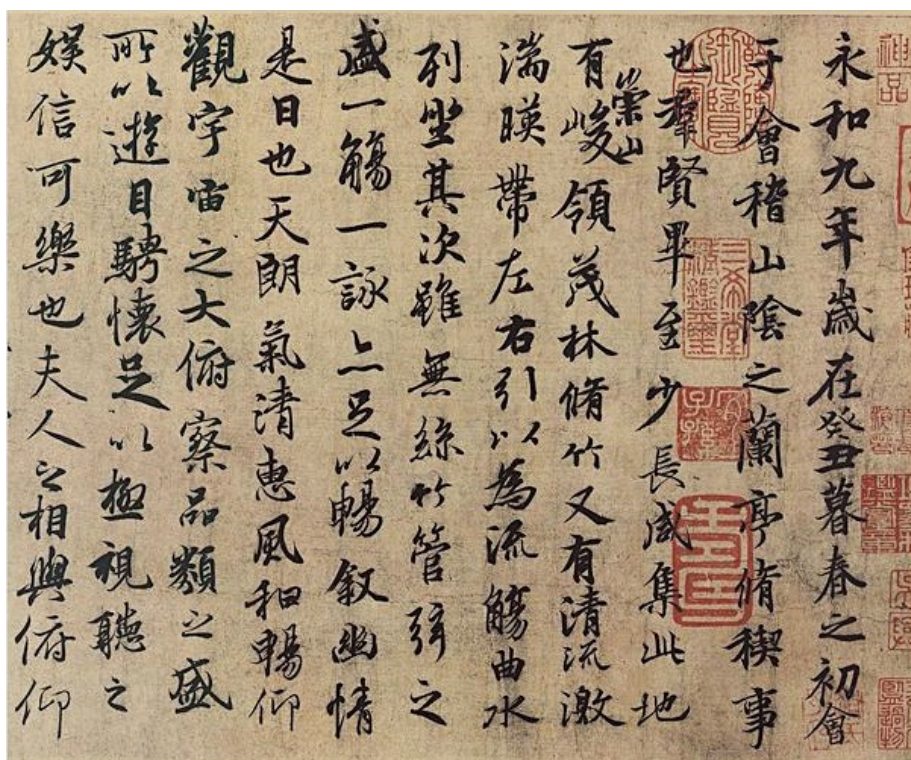 永和九年歲在癸丑暮春之初會
于會稽山陰之蘭亭脩稧事
也羣賢畢至少長咸集此地
有崇山峻領茂林脩竹又有清流激
湍暎帶左右引以為流觴曲水
列坐其次雖無絲竹管弦之
盛一觴一詠亦足以暢叙幽情
是日也天朗氣清惠風和暢仰
觀宇宙之大俯察品類之盛
所以遊目騁懷足以極視聽之
娛信可樂也夫人之相與俯仰
神品
三希堂精鑑璽